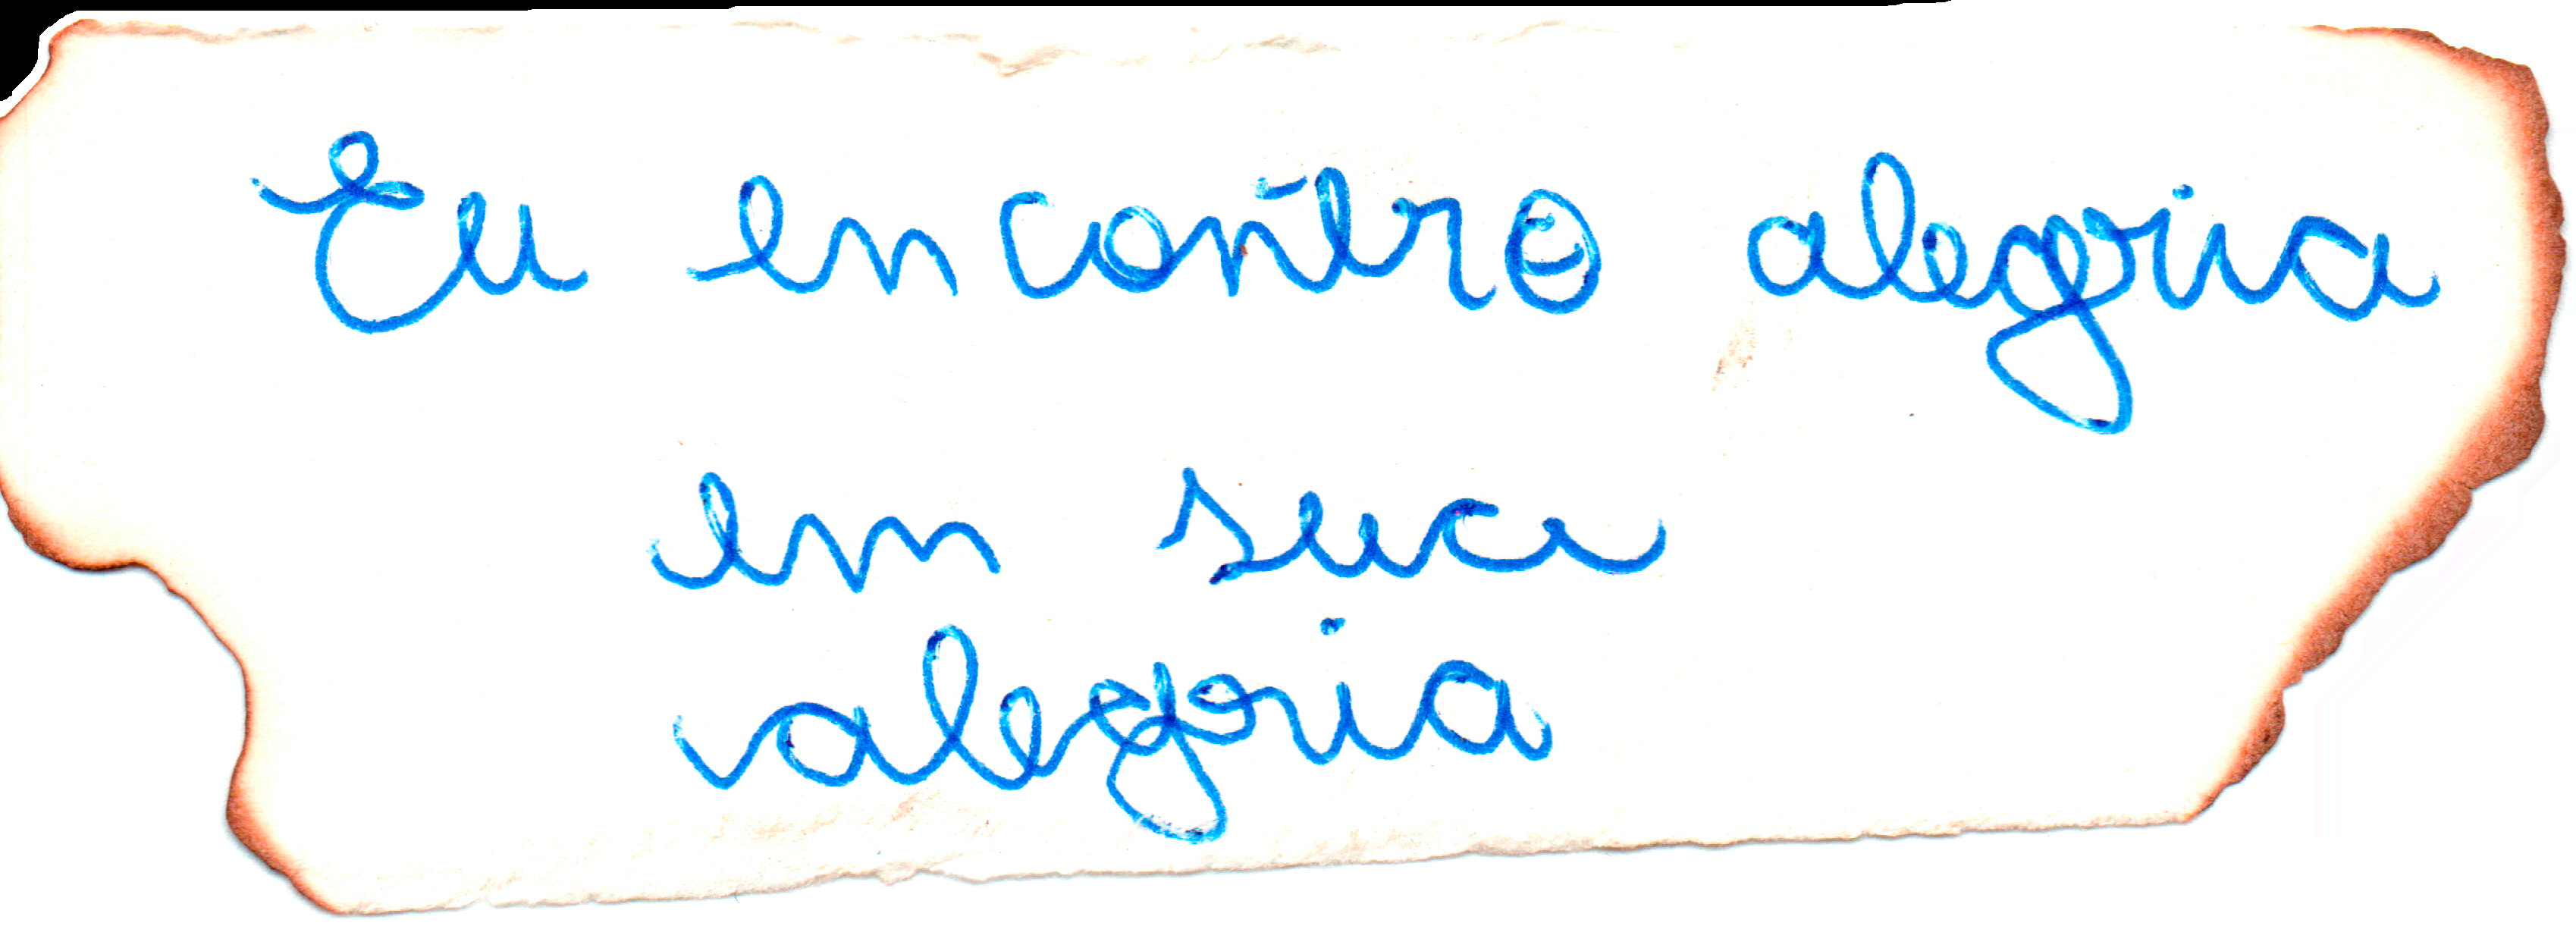 Eu encontro alegria
em sua
alegria